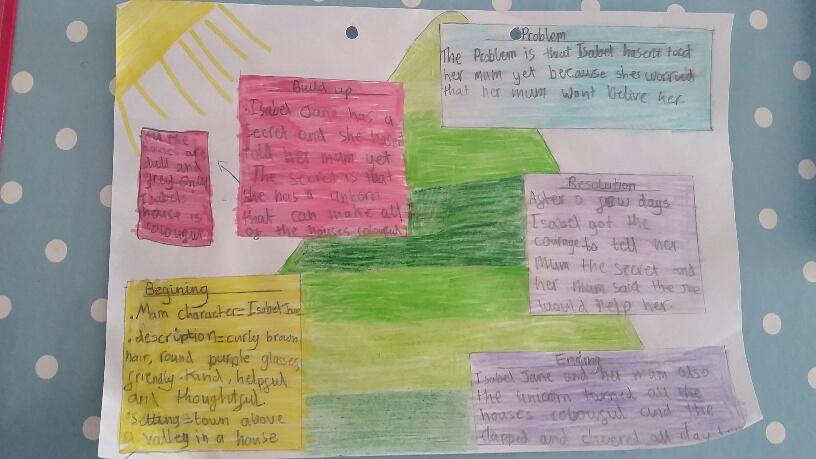 Begining
. Main character=Isabel Jane
. description=curly brown
hair, round purple glasses,
friendly-kind, helpful
and thoughtful.
Setting=town above
a valley in a house
Build up
. Isabel Jane has a
secret and she hasent
told her mum yet
The secret is that
she has a unicorn
that can make all
of the houses colourful
the
are
dull and
grey only
Isabels
house is
colourful
Problem
The Problem is that Isabel hasent told
her mum yet because shes worried
that her mum wont belive her
Resolution
After a few days
Isabel got the
courage to tell her
Mum the secret and
her mum said the
would help her.
Ending
Isabel Jane and her mum also
the unicorn turned all the
houses colourful and the
clapped and cheered all day